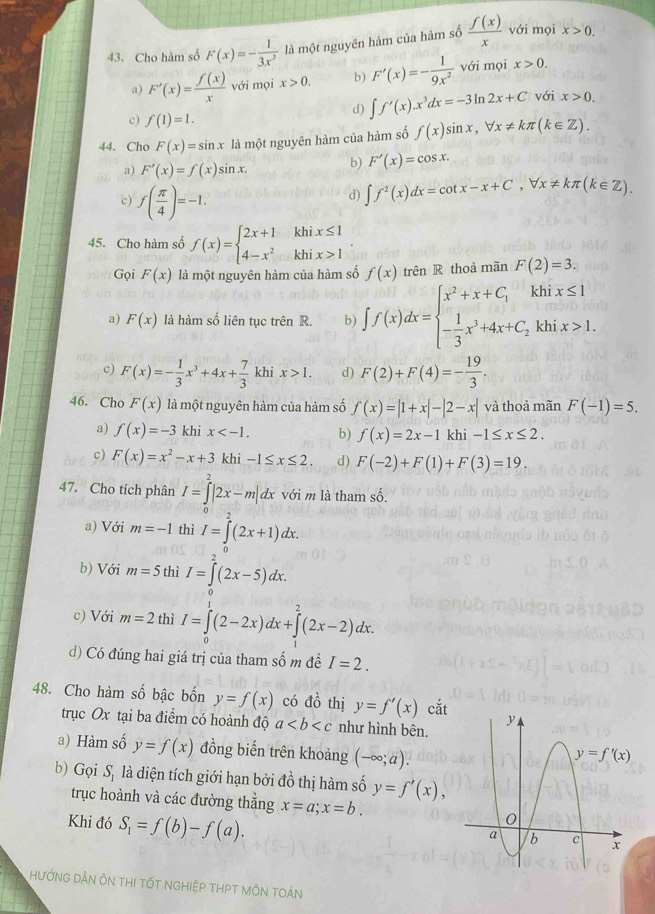 43. Cho hàm số F(x) = -\frac{1}{3x^3} là một nguyên hàm của hàm số \frac{f(x)}{x} với mọi x > 0.
a) F'(x) = \frac{f(x)}{x} với mọi x > 0. b) F'(x) = -\frac{1}{9x^2} với mọi x > 0.
c) f(1) = 1. d) ∫ f'(x).x^3 dx = -3 ln 2x + C với x > 0.
44. Cho F(x) = sin x là một nguyên hàm của hàm số f(x) sin x, ∀x ≠ kπ (k ∈ ℤ).
a) F'(x) = f(x) sin x. b) F'(x) = cos x.
c) f(\frac{π}{4}) = -1. d) ∫ f^2(x) dx = cot x - x + C , ∀x ≠ kπ (k ∈ ℤ).
45. Cho hàm số f(x) = { 2x + 1 khi x ≤ 1
4 - x^2 khi x > 1 .
Gọi F(x) là một nguyên hàm của hàm số f(x) trên ℝ thoả mãn F(2) = 3.
a) F(x) là hàm số liên tục trên ℝ. b) ∫ f(x) dx = { x^2 + x + C_1 khi x ≤ 1
-\frac{1}{3}x^3 + 4x + C_2 khi x > 1.
c) F(x) = -\frac{1}{3}x^3 + 4x + \frac{7}{3} khi x > 1. d) F(2) + F(4) = -\frac{19}{3}.
46. Cho F(x) là một nguyên hàm của hàm số f(x) = |1 + x| - |2 - x| và thoả mãn F(-1) = 5.
a) f(x) = -3 khi x < -1. b) f(x) = 2x - 1 khi -1 ≤ x ≤ 2 .
c) F(x) = x^2 - x + 3 khi -1 ≤ x ≤ 2. d) F(-2) + F(1) + F(3) = 19 .
47. Cho tích phân I = ∫_0^2 |2x - m| dx với m là tham số.
a) Với m = -1 thì I = ∫_0^2 (2x + 1) dx.
b) Với m = 5 thì I = ∫_0^2 (2x - 5) dx.
c) Với m = 2 thì I = ∫_0^1 (2 - 2x) dx + ∫_1^2 (2x - 2) dx.
d) Có đúng hai giá trị của tham số m để I = 2 .
48. Cho hàm số bậc bốn y = f(x) có đồ thị y = f'(x) cắt
trục Ox tại ba điểm có hoành độ a < b < c như hình bên.
a) Hàm số y = f(x) đồng biến trên khoảng (-∞; a).
b) Gọi S_1 là diện tích giới hạn bởi đồ thị hàm số y = f'(x) ,
trục hoành và các đường thẳng x = a; x = b .
Khi đó S_1 = f(b) - f(a).
y
y = f'(x)
O
a b c x
HƯỚNG DẪN ÔN THI TỐT NGHIỆP THPT MÔN TOÁN